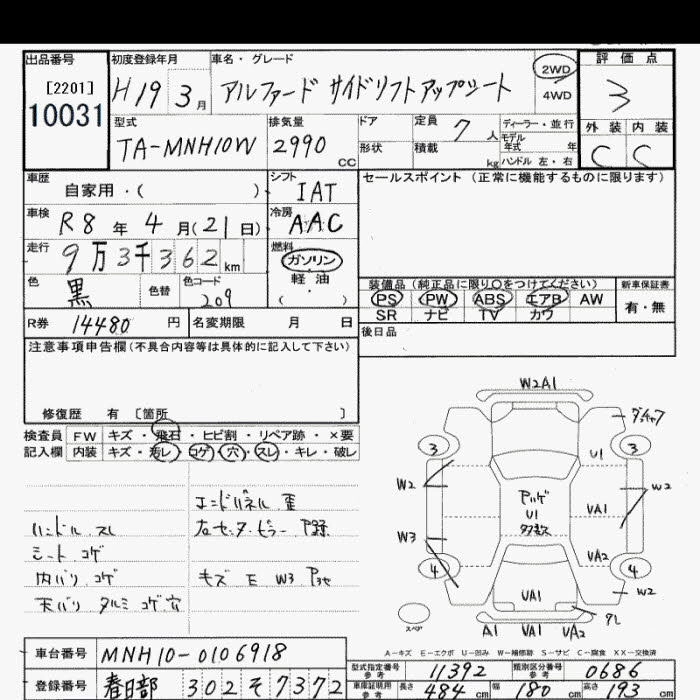 出品番号
[2201]
10031
初度登録年月
H19 3月
車名・グレード
アルファード サイドリフトアップシート
2WD
4WD
評価点
3
外装 内装
C C
型式
TA-MNH10W
排気量
2990 CC
ドア
形状
定員 7人
積載 kg
ディーラー・並行
モデル年式 年
ハンドル 左・右
車歴
自家用・( )
シフト
IAT
車検
R8年4月(21日)
冷房
AAC
走行
9万3千362km
燃料
ガソリン
軽油
( )
色
黒
色替
色コード
209
R券 14480円
名変期限 月 日
セールスポイント (正常に機能するものに限ります)
装備品 (純正品に限り○をつけてください)
PS PW ABS エアB AW
SR ナビ TV カワ
新車保証書
有・無
後日品
注意事項申告欄(不具合内容等は具体的に記入して下さい)
修復歴 有 [箇所 ]
検査員
記入欄
FW キズ・飛石・ヒビ割・リペア跡・×要
内装 キズ・汚レ・コゲ・穴・スレ・キレ・破レ
エンドパネル 歪
ハンドル スレ
シート コゲ
内バリ コゲ
天バリ タルミ コゲ 穴
キズ E W3
W2A1
3
3
U1
W2
W2
U1
VA1
W3
VA2
4
4
W2
VA1
スペア
A1 VA1 VA2
A−キズ E−エクボ U−凹み W−補修跡 S−サビ C−腐食 XX−交換済
車台番号 MNH10-0106918
登録番号 春日部 302 そ 7372
型式指定番号
参考
11392
類別区分番号
参考
0686
車庫証明用
参考
長さ 484 cm
幅 180 cm
高さ 193 cm